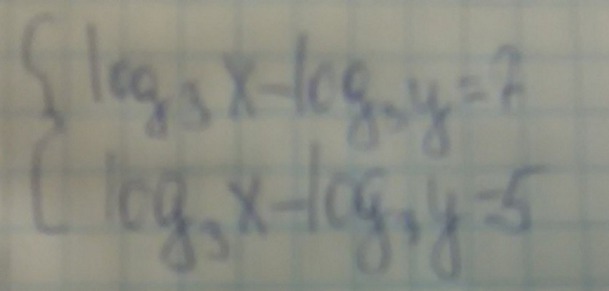 log₃x-log₃y=7
log₃x-log₃y=5